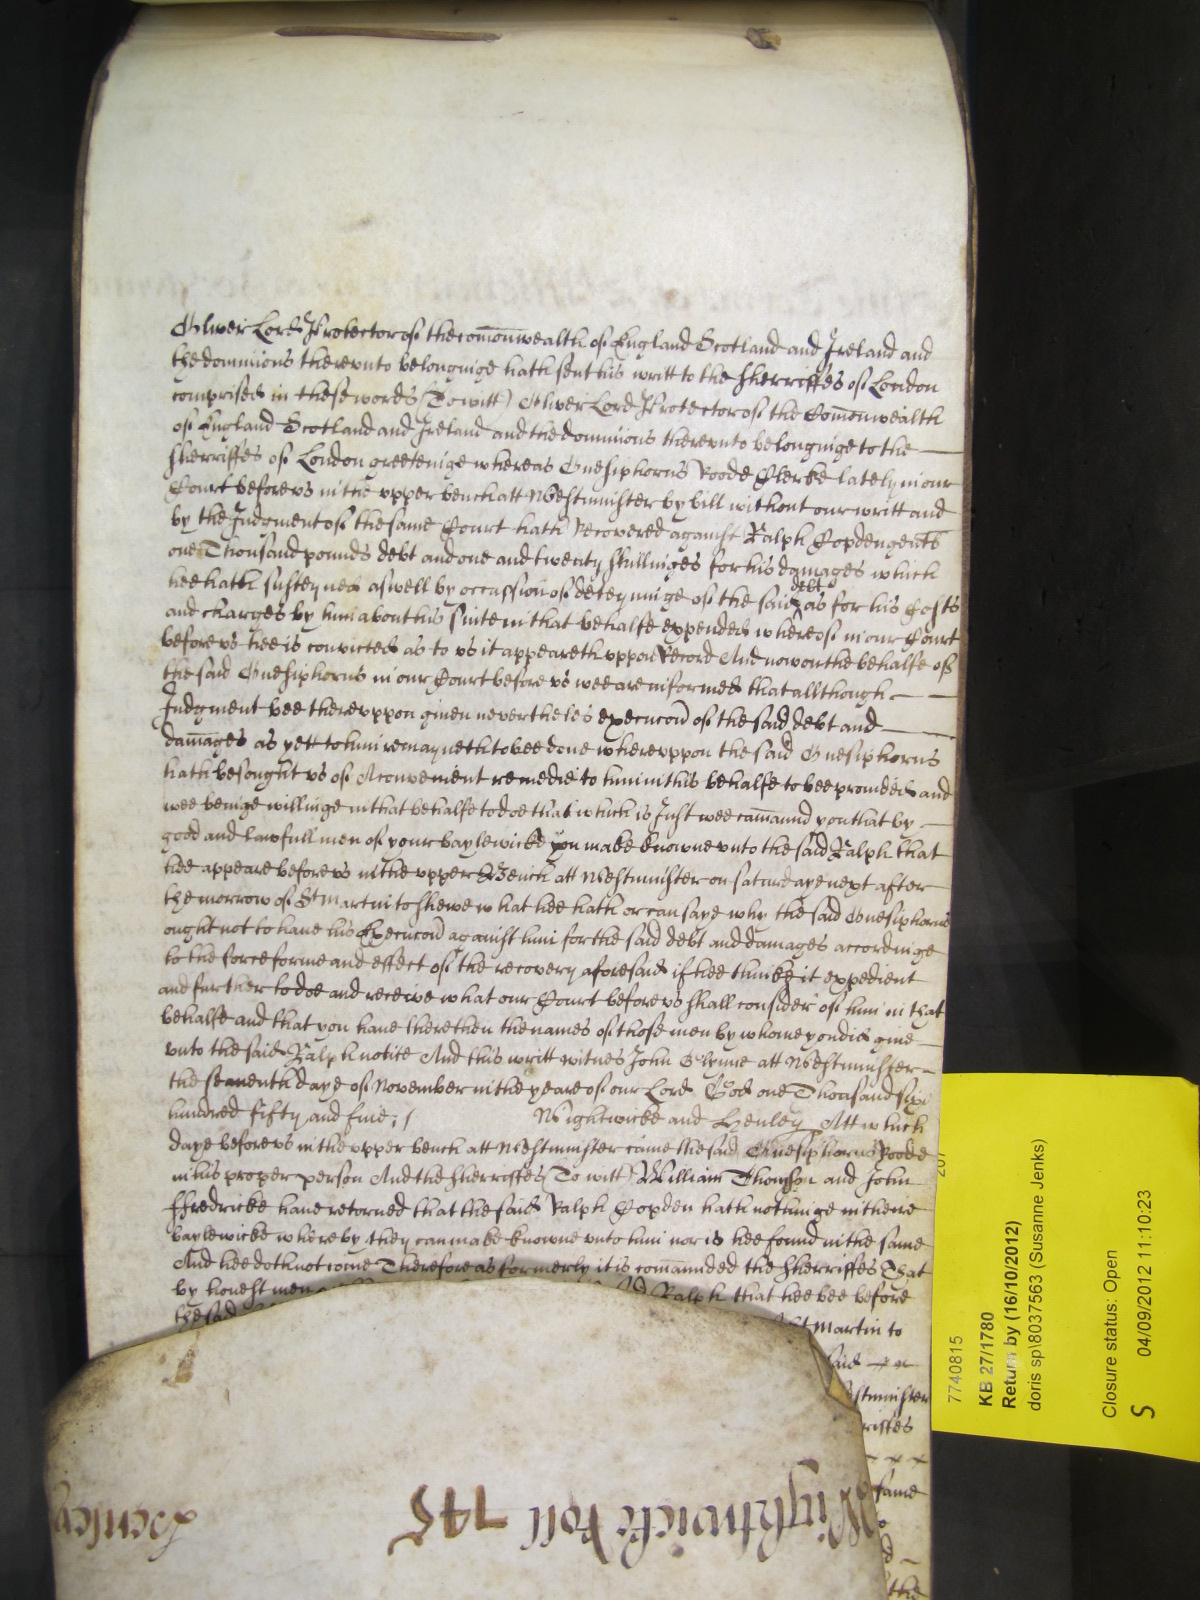 Oliver Lord Protector of the com̄onwealth of England Scotland and Ireland and
the dominions therevnto belonginge hath sent his writt to the Sherriffes of London
comprised in these words (To witt) Oliver Lord Protector of the Com̄onwealth
of England Scotland and Ireland and the dominions therevnto belonginge to the
Sherriffes of London greetinge whereas Onesiphorus Roode Clerke lately in our
Court before vs in the vpper bench att Westminster by bill without our writt and
by the Judgment of the same Court hath Recovered against Ralph Copden gent
one Thousand pounds debt and one and twenty shillinges for his damages which
hee hath susteyned aswell by occassion of deteyninge of the said debt as for his Costs
and charges by him about his suite in that behalfe expended whereof in our Court
before vs hee is convicted as to vs it appeareth vppon Record And now on the behalfe of
the said Onesiphorus in our Court before vs wee are informed that allthough
Judgment bee therevppon given neverthelĕs execucoñ of the said debt and
dam̄ages as yett to him remayneth to bee done wherevppon the said Onesiphorus
hath besought vs of A convenient remedie to him in this behalfe to bee provided and
wee beinge willinge in that behalfe to doe that which is Just wee com̄aund you that by
good and lawfull men of your baylewicke you make knowne vnto the said Ralph that
hee appeare before vs in the vpper Bench att Westminster on saturdaye next after
the morrow of St Martin to shewe what hee hath or can saye why the said Onesiphorus
ought not to haue his Execucoñ against him for the said debt and damages accordinge
to the force forme and effect of the recovery aforesaid if hee thinke it expedient
and further to doe and receive what our Court before vs shall consider of him in that
behalfe and that you haue there then the names of those men by whome you did giue
vnto the said Ralph notice And this writt witnes John Glynne att Westminster
the seaventh daye of November in the yeare of our Lord God one Thousand six
hundred fifty and fiue; / Wightwicke and Henley Att which
daye before vs in the vpper bench att Westminster came the said Onesiphorus Roode
in his proper person And the Sherriffes (To witt) William Thomson and John
Ffredricke haue returned that the said Ralph Copden hath nothinge in theire
baylewicke whereby they can make knowne vnto him nor is hee found in the same
And hee doth not come Therefore as formerly it is com̄aunded the Sherriffes That
by honest men Ralph that hee bee before
the said St Martin to
said
Westminster
Sherriffes
same
the
Wightwicke Roll 745
Henley
7740815
KB 27/1780
Return by (16/10/2012)
doris sp\8037563 (Susanne Jenks)
Closure status: Open
S 04/09/2012 11:10:23